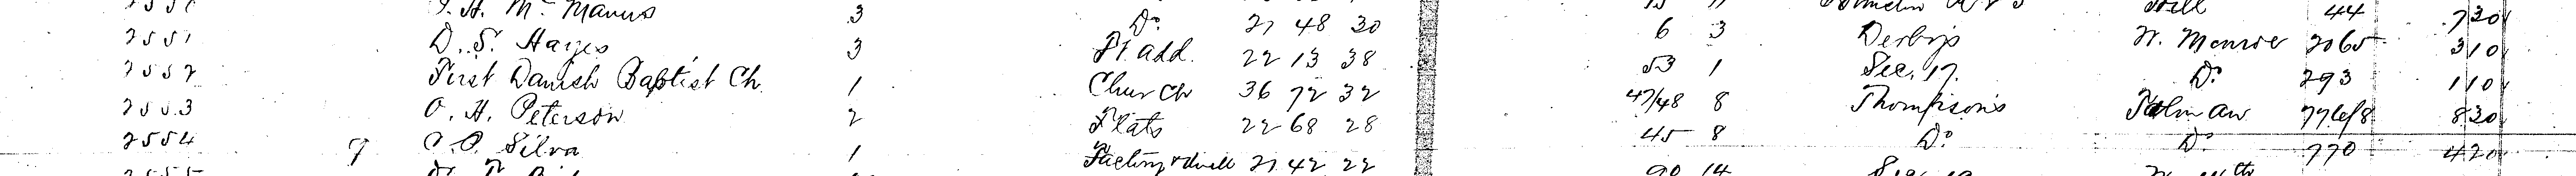 J. H. McManus 3 Do 21 48 30 Hill 44 730
2551 D. S. Hayes 3 Fl add. 22 13 38 6 3 Derbys W. Monroe 2065 310
2552 First Danish Baptist Ch. 1 Church 36 72 32 53 1 Sec. 17. Do 293 110
2553 O. H. Peterson 2 Flats 22 68 28 47/48 8 Thompson's Talman av 776/8 830
2554 1 Factory & dwell 21 42 22 45 8 Do Do 770 420
90 14